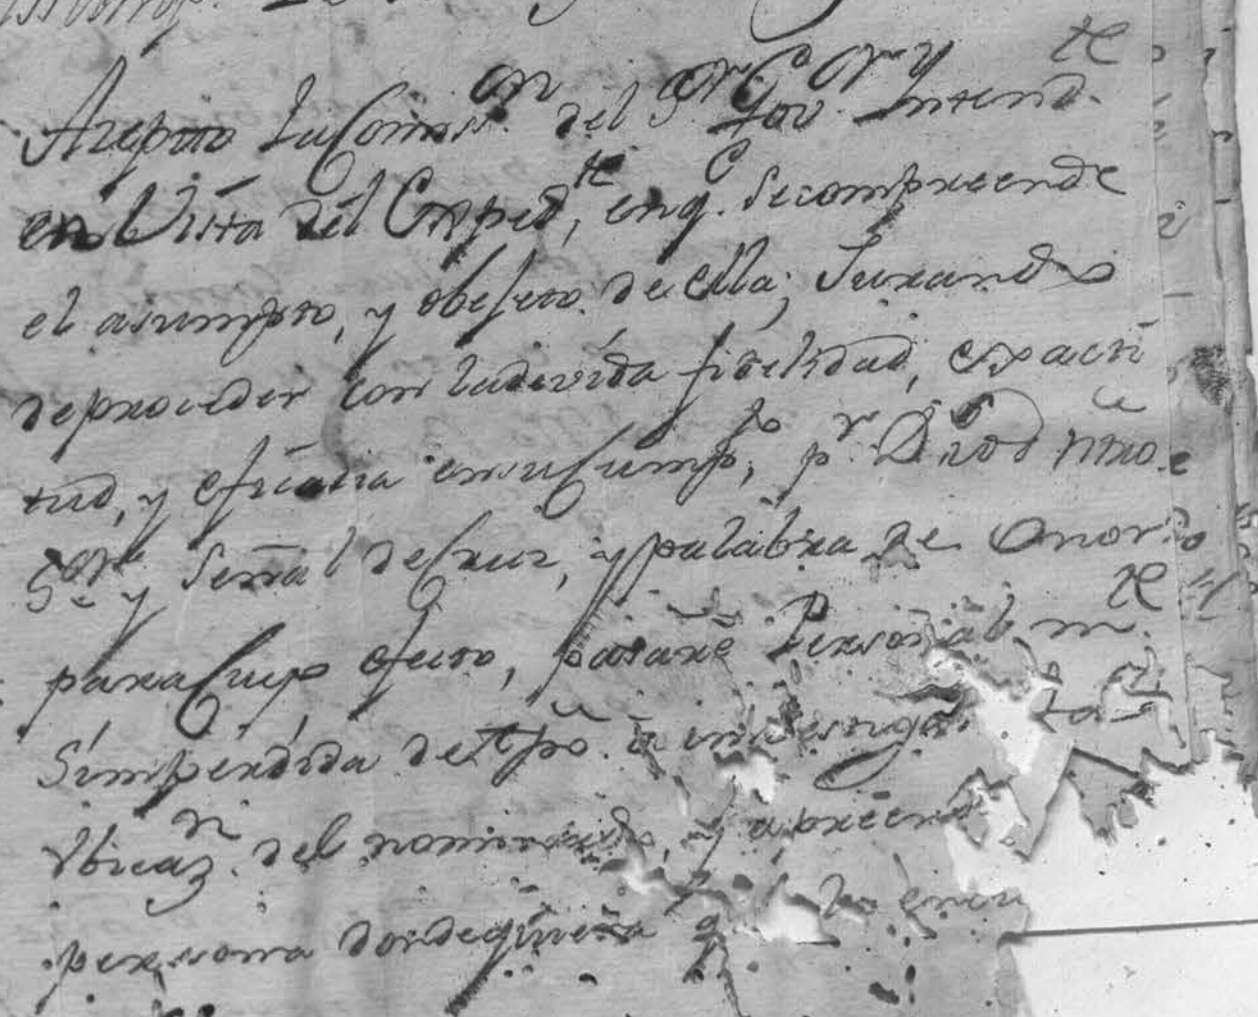 Azepto la Comis.on del S.or Gov.or Intend.te
en Vista del Exped.te, en q.e se comprende
el asumpto, y obgeto de ella; Jurando
deproceder con ladevida fidelidad, exacti
tud, y eficacia ensu Cump.to, p.r Dios nño.
S.or y Señal de Cruz, y palabra de Onor
para Cuyo efecto, pasaré Personal m.te
Sinperdida de tpo. á investigar la
Ubicaz.n del nominado, y aprehend
persona donde quiera q. le encu